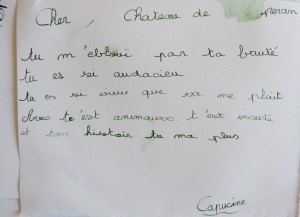 Cher, Chateau de
tu m'éblouï par ta bauté
tu es si audacieu
tu es si que sa me plait
Avec te est animaux t'est insecte
et ton histoir tu ma plus
Capucine